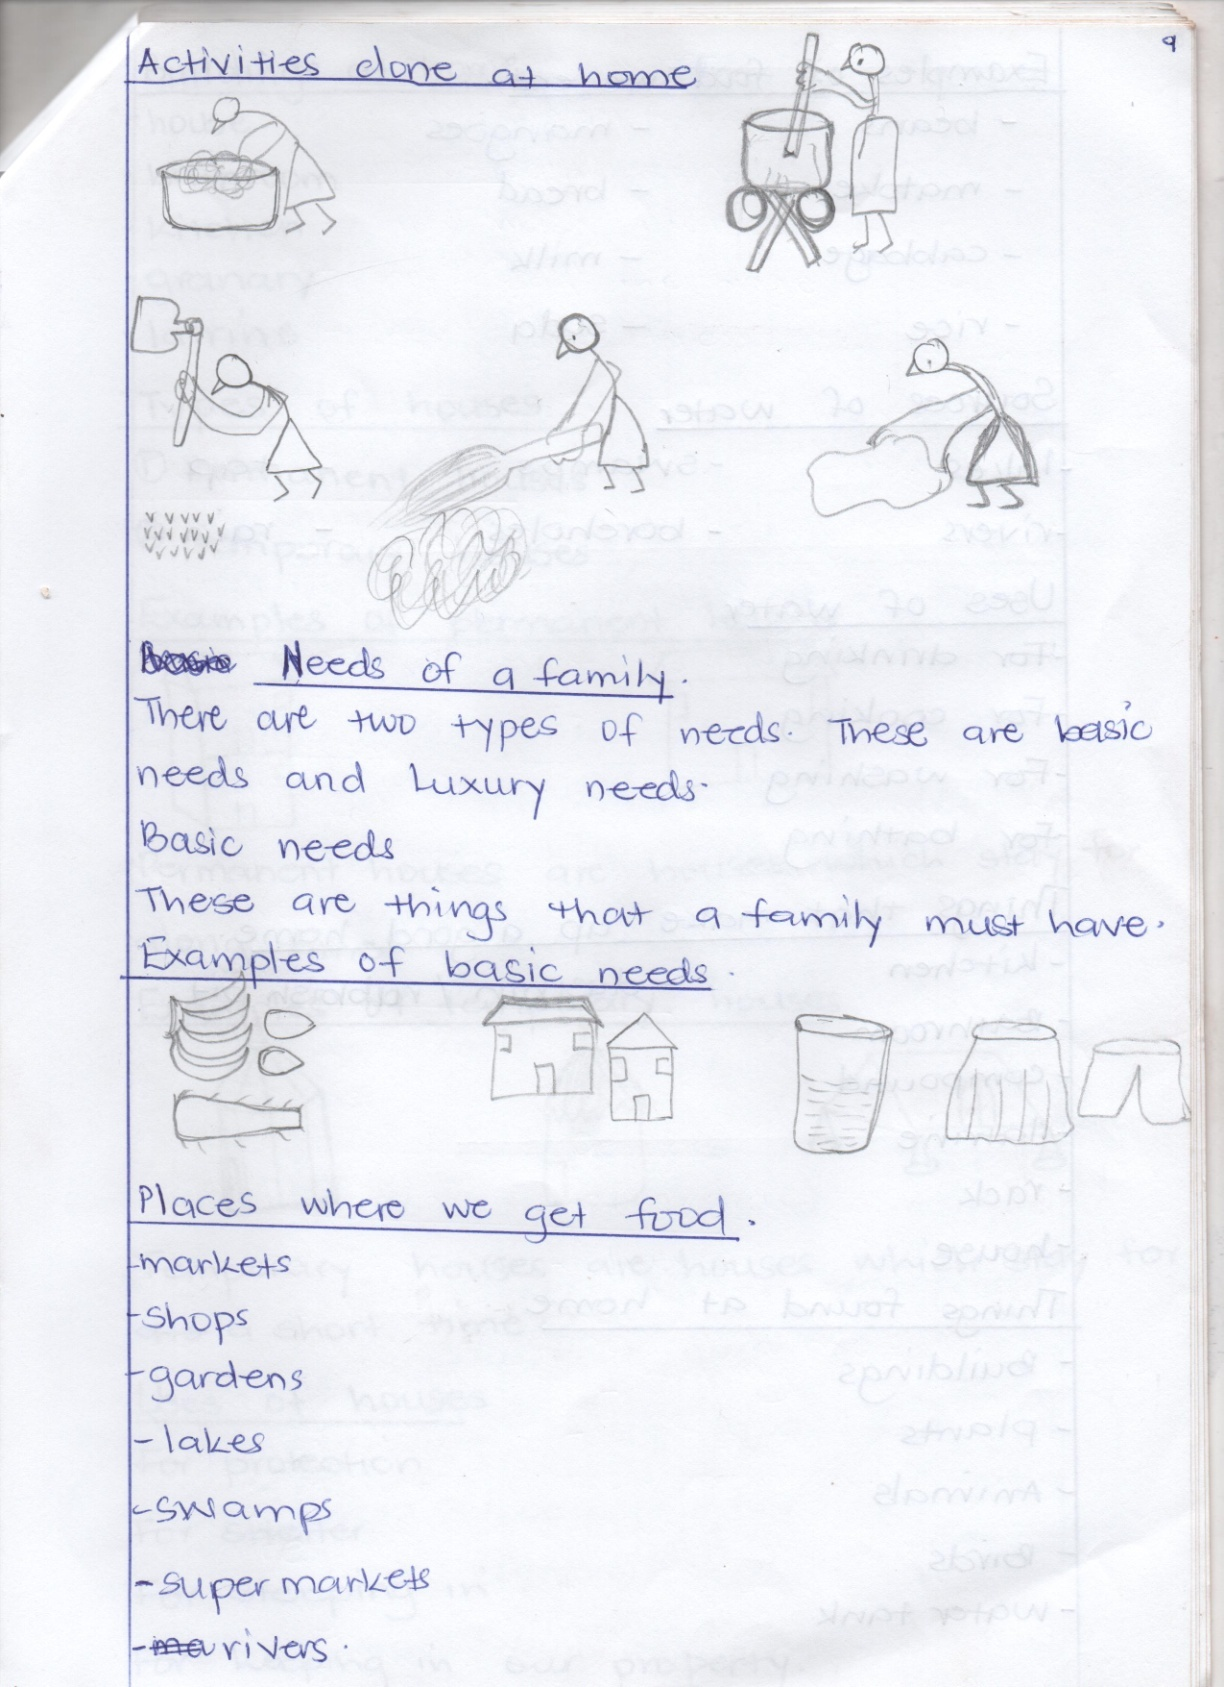 9
Activities done at home
Needs of a family.
There are two types of needs. These are basic
needs and Luxury needs.
Basic needs
These are things that a family must have.
Examples of basic needs.
Places where we get food.
-markets
-shops
-gardens
-lakes
-swamps
-super markets
-rivers.